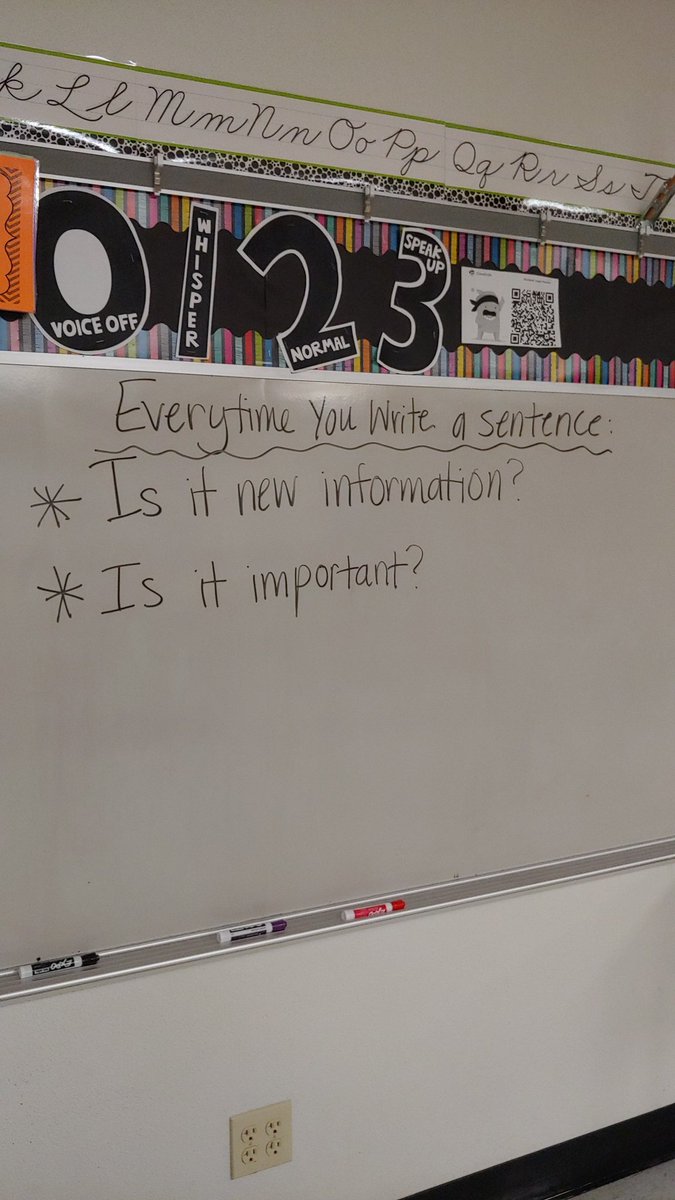 k Ll Mm Nn Oo Pp Qq Rr Ss T
0 1 2 3
VOICE OFF
WHISPER
NORMAL
SPEAK UP
Everytime You Write a sentence:
* Is it new information?
* Is it important?
EXPO
EXPO